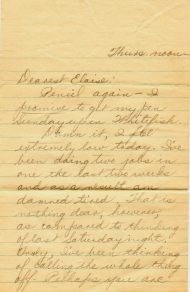 Thurs. noon
Dearest Elaise:
Pencil again - I
promise to get my pen
Sunday upon Whitefish.
Damn it, I feel
extremely low today. I've
been doing two jobs in
one the last two weeks
and as a result am
damned tired. That is
nothing dear, however,
as compared to thinking
of last Saturday night.
I've been thinking
of calling the whole thing
off - Perhaps you are